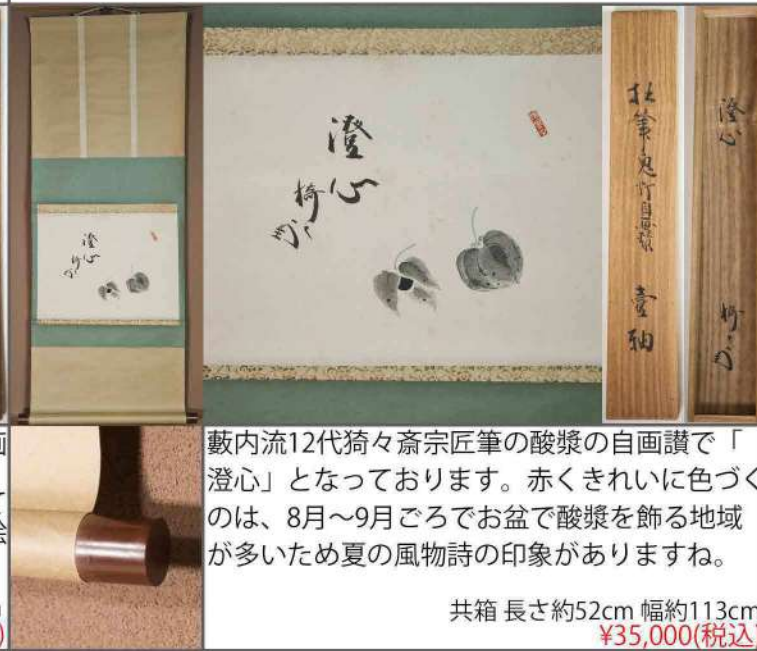 澄心
猗々
拙筆鬼灯自画賛 壹軸
澄心
猗々
藪内流12代猗々斎宗匠筆の酸漿の自画讃で「
澄心」となっております。赤くきれいに色づく
のは、8月～9月ごろでお盆で酸漿を飾る地域
が多いため夏の風物詩の印象がありますね。
共箱 長さ約52cm 幅約113cm
¥35,000(税込)